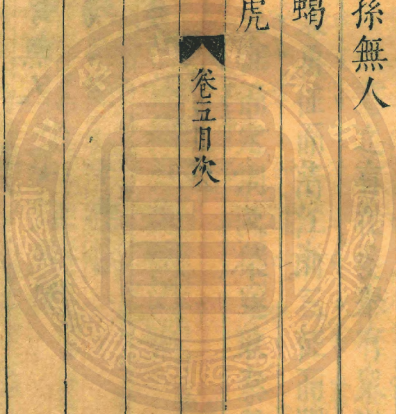 孫無人
蝎
虎
卷五目次